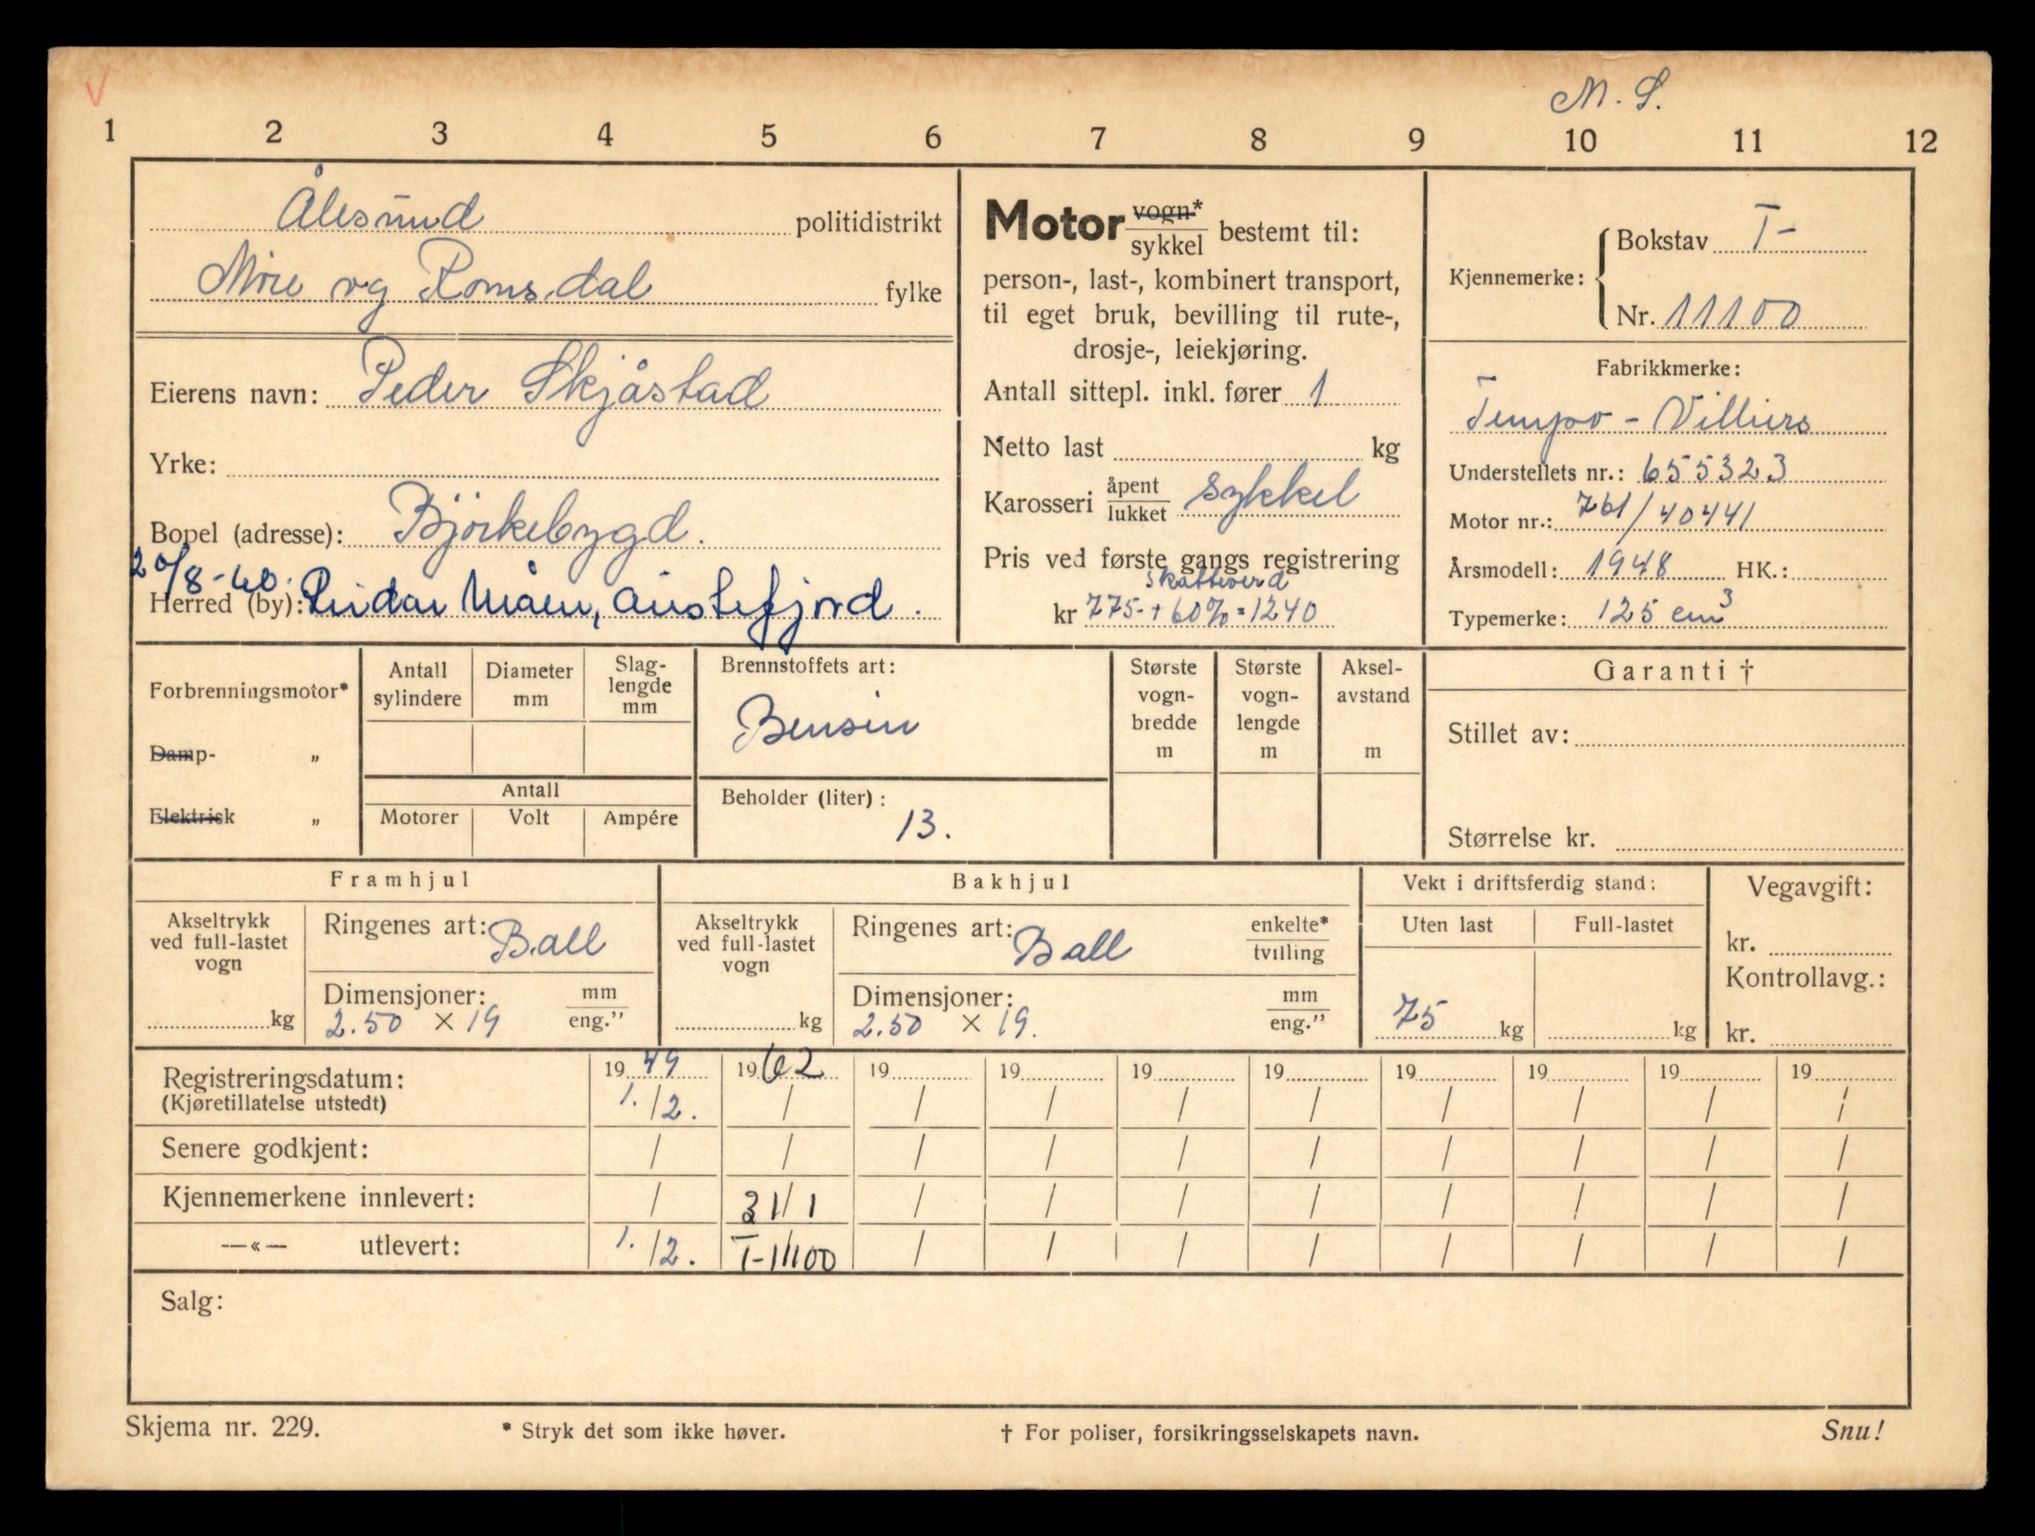 M. S.
1 2 3 4 5 6 7 8 9 10 11 12
Ålesund politidistrikt
Møre og Romsdal fylke
Eierens navn: Peder Skjåstad
Yrke:
Bopel (adresse): Bjørkebygd.
20/8-60.
Herred (by): Reidar Måen, Austefjord.
Motor vogn* / sykkel bestemt til:
person-, last-, kombinert transport,
til eget bruk, bevilling til rute-,
drosje-, leiekjøring.
Antall sittepl. inkl. fører 1
Netto last kg
Karosseri åpent / lukket sykkel
Pris ved første gangs registrering
skatteverd
kr 775- + 60% = 1240
Kjennemerke: Bokstav T-
Nr. 11100
Fabrikkmerke:
Tempo - Villiers
Understellets nr.: 655323
Motor nr.: 761/40441
Årsmodell: 1948 HK.:
Typemerke: 125 cm3
Forbrenningsmotor*
Damp- „
Elektrisk „
Antall sylindere
Diameter mm
Slag-lengde mm
Antall
Motorer Volt Ampére
Brennstoffets art:
Bensin
Beholder (liter):
13.
Største vogn-bredde m
Største vogn-lengde m
Aksel-avstand m
Garanti †
Stillet av:
Størrelse kr.
Framhjul
Akseltrykk
ved full-lastet
vogn
kg
Ringenes art: Ball
Dimensjoner: mm / eng.”
2.50 × 19
Bakhjul
Akseltrykk
ved full-lastet
vogn
kg
Ringenes art: Ball enkelte* / tvilling
Dimensjoner: mm / eng.”
2.50 × 19.
Vekt i driftsferdig stand:
Uten last Full-lastet
75 kg kg
Vegavgift:
kr.
Kontrollavg.:
kr.
Registreringsdatum: 1949 1962 19 19 19 19 19 19 19 19
(Kjøretillatelse utstedt) 1./2. / / / / / / / / /
Senere godkjent: / / / / / / / / / /
Kjennemerkene innlevert: / 31/1 / / / / / / / /
—«— utlevert: 1./2. T-11100 / / / / / / / /
Salg:
Skjema nr. 229. * Stryk det som ikke høver. † For poliser, forsikringsselskapets navn. Snu!